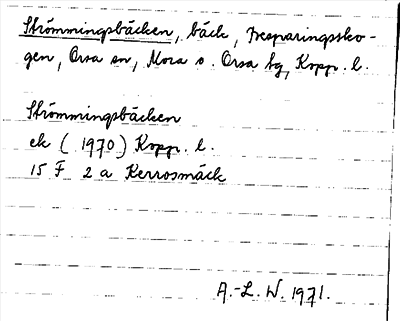 Strömmingsbäcken, bäck, Besparingssko-
gen, Orsa sn, Mora o. Orsa tg, Kopp. l.
Strömmingsbäcken
ek (1970) Kopp. l.
15 F 2 a Kerrosmäck
A.-L. W. 1971.